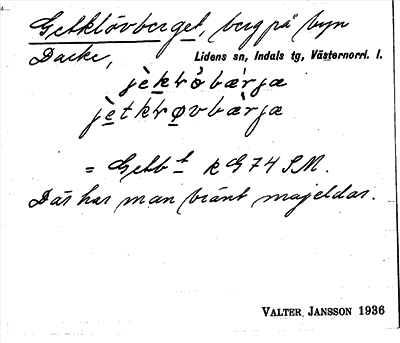 Getklövberget, berg på byn
Dacke, Lidens sn, Indals tg, Västernorrl. l.
jèkrǒbærja
jètkrøvbærja
= Getb t k G74 SM.
Där har man bränt majeldar.
VALTER JANSSON 1936